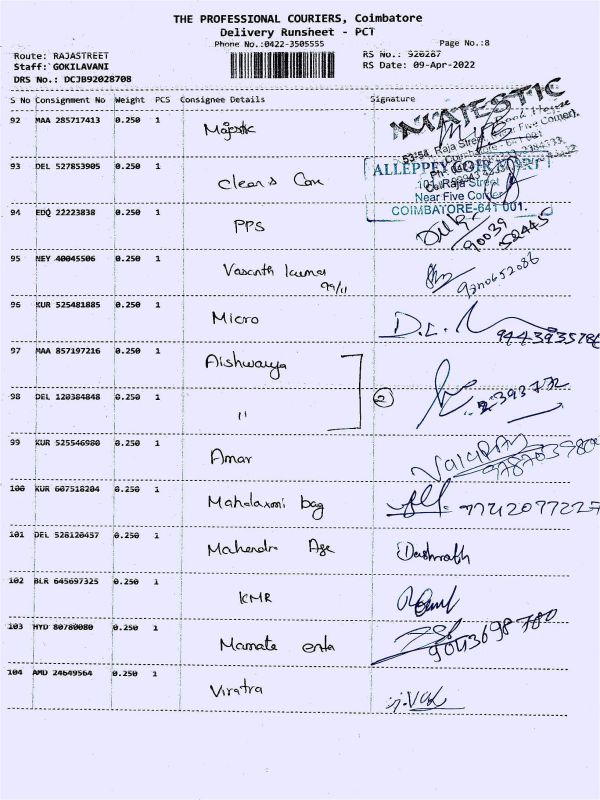 THE PROFESSIONAL COURIERS, Coimbatore
Delivery Runsheet - PCT
Phone No.:0422-3505555
Page No.:8
Route: RAJASTREET
RS No.: 920287
Staff: GOKILAVANI
RS Date: 09-Apr-2022
DRS No.: DCJB92028708
S No Consignment No Weight PCS Consignee Details Signature
92 MAA 285717413 0.250 1 Majestic
MAJESTIC
53-54, Raja Street
93 DEL 527853905 0.250 1 Clean & Care
ALLEPPEY COIR MART
101, Raja Street
Near Five Corner
COIMBATORE-641 001.
94 EDQ 22223838 0.250 1 PPS
90039
52445
95 NEY 40045506 0.250 1 Vasanth kumar
99/11
96 KUR 525481885 0.250 1 Micro
97 MAA 857197216 0.250 1 Aishwarya
98 DEL 120384848 0.250 1 "
2
99 KUR 525546980 0.250 1 Amar
100 KUR 607518204 0.250 1 Mahalaxmi bag
101 DEL 528120457 0.250 1 Mahendra Age Dashrath
102 BLR 645697325 0.250 1 KMR
103 HYD 80780080 0.250 1 Mamate
9043698780
104 AMD 24649564 0.250 1 Viratra